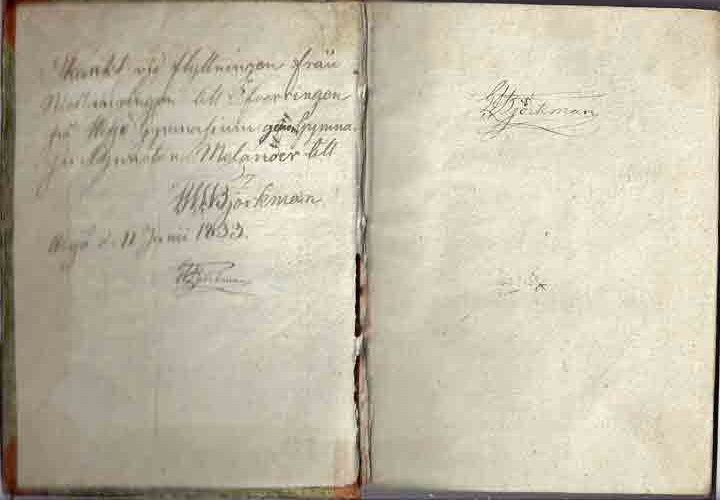 Skänkt vid flyttningen från
Mellanringen till Öfverringen
på Wexjö Gymnasium genom Gymna-
sii Melander till
Björkman
Wexjö d. 11 Junii 1833.
Björkman
Björkman